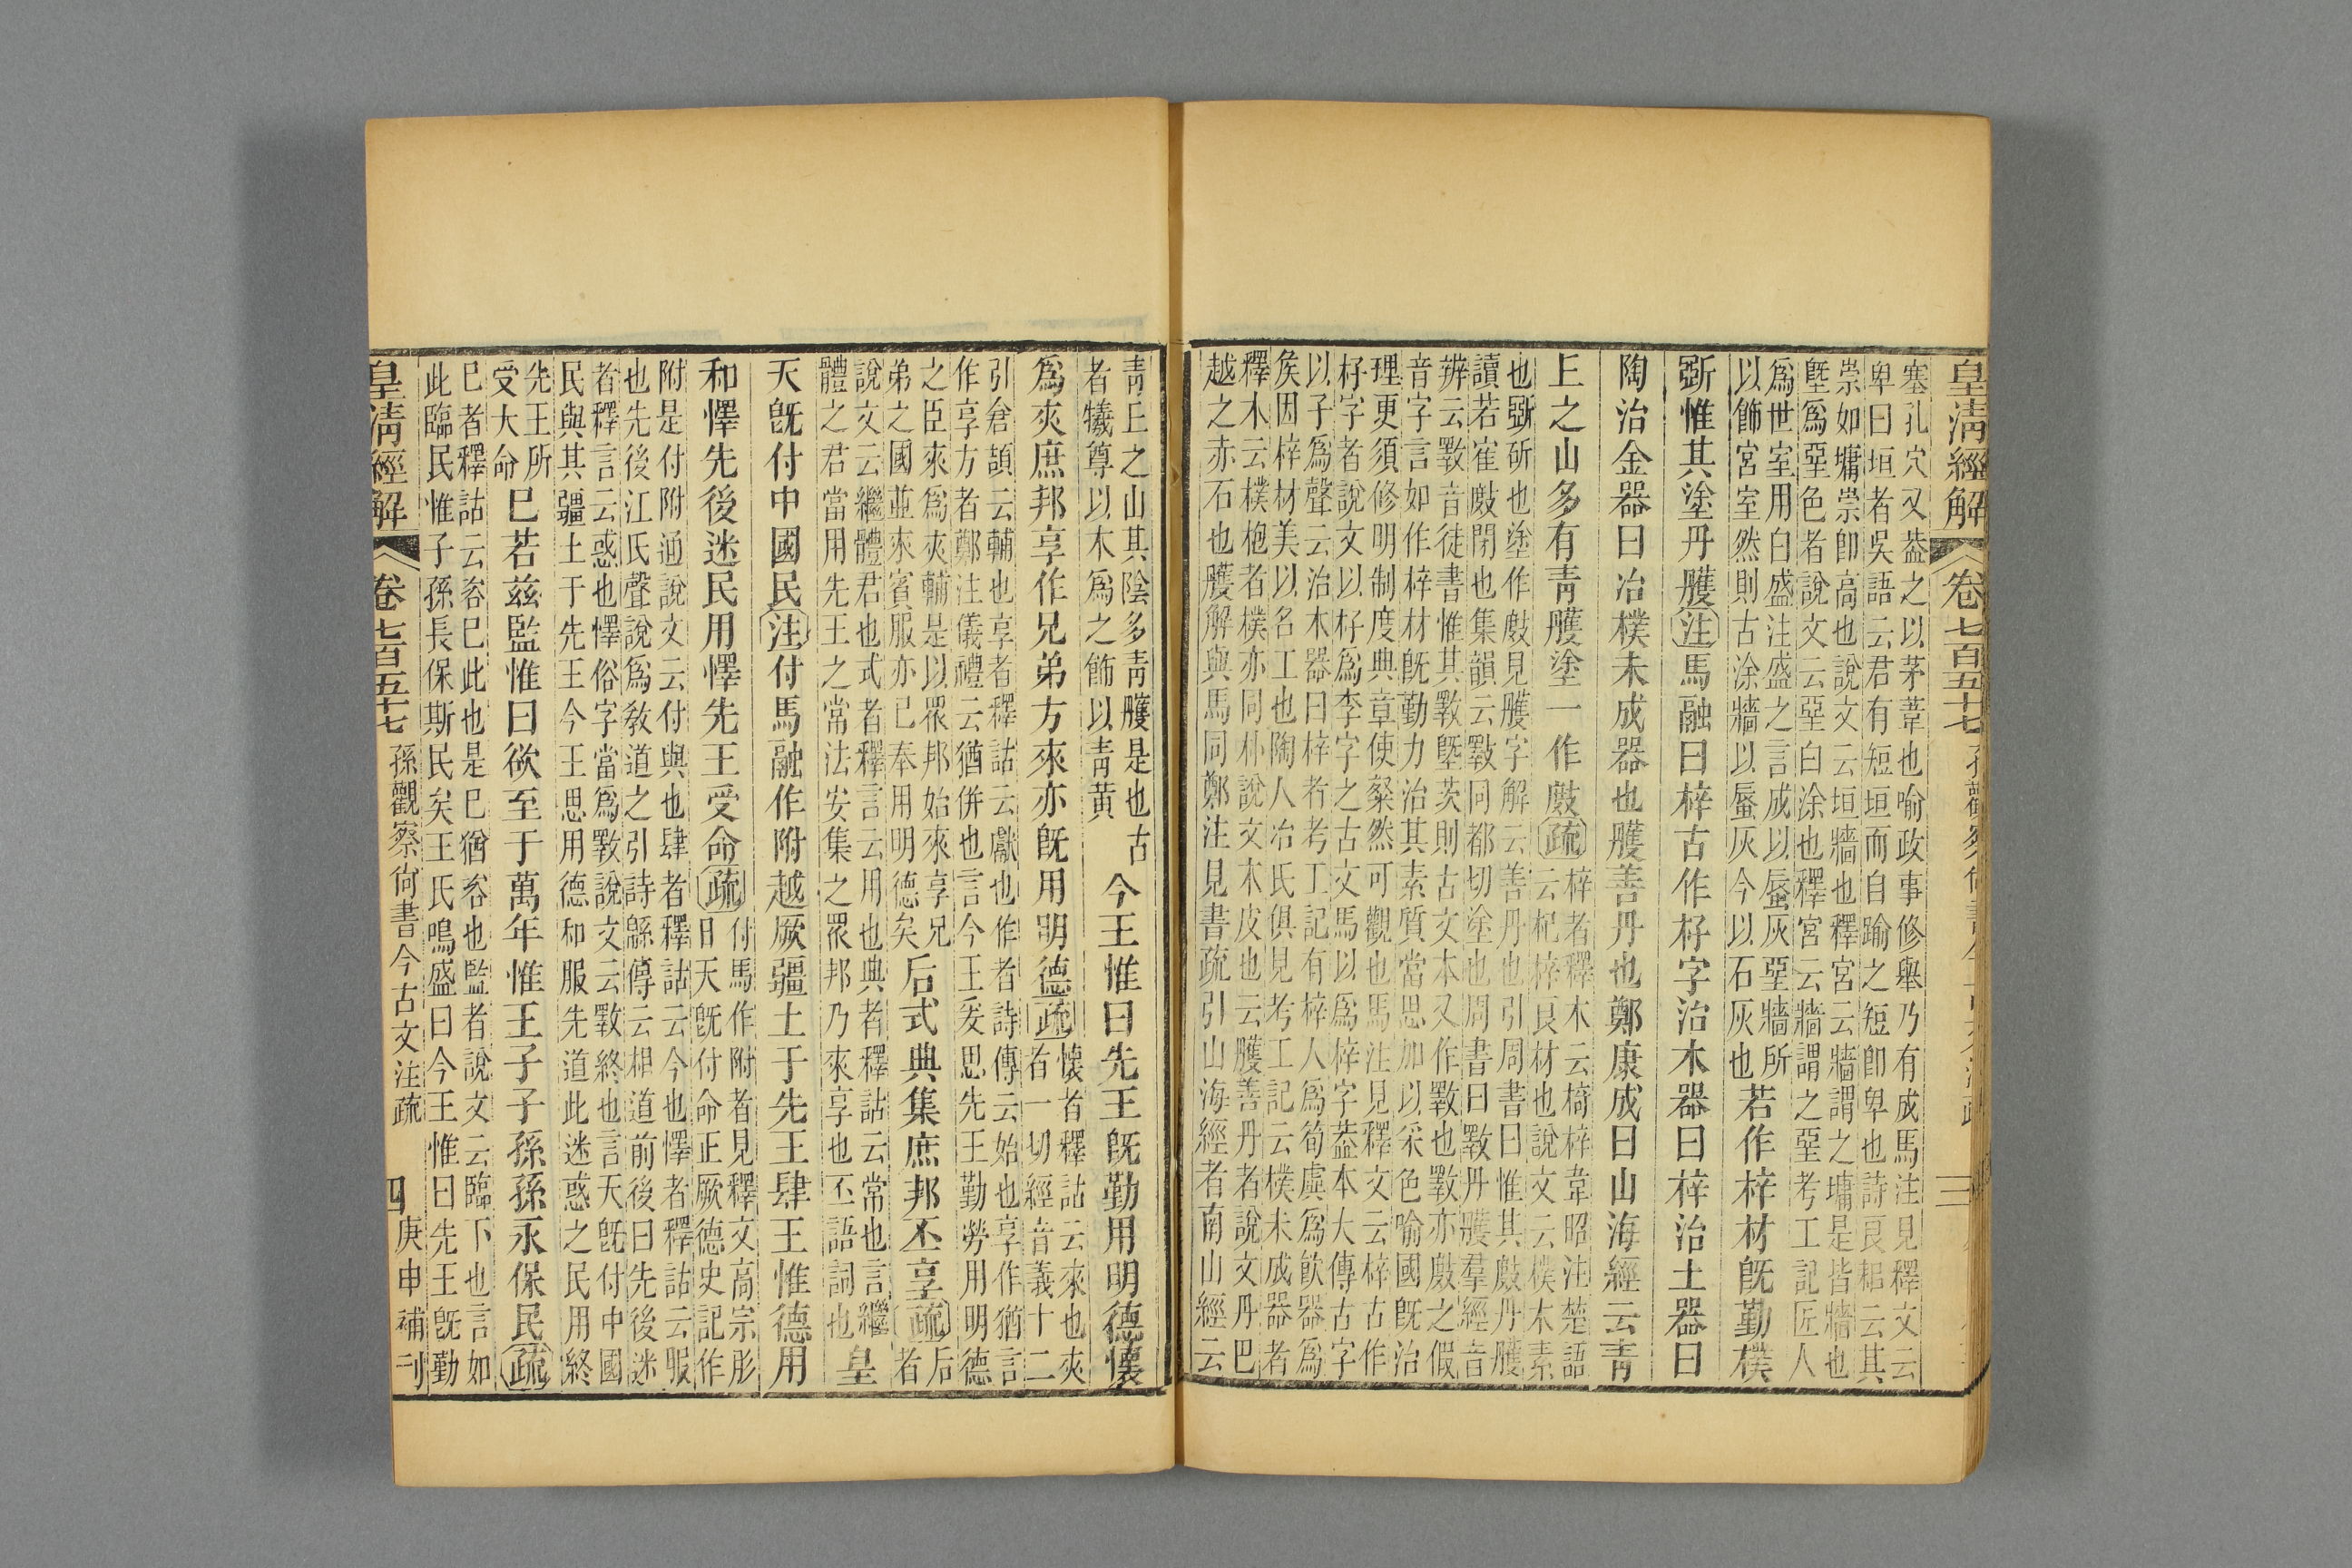 皇清經解
卷七百五十七
三
塞孔穴又葢之以茅葦也喻政事修舉乃有成馬注見釋文云
卑曰垣者吳語云君有短垣而自踰之短卽卑也詩良耜云其
崇如墉崇卽高也說文云垣牆也釋宮云牆謂之墉是皆牆也
塈爲堊色者說文云堊白涂也釋宮云牆謂之堊考工記匠人
爲世室用白盛注盛之言成以蜃灰堊牆所
以飾宮室然則古涂牆以蜃灰今以石灰也
若作梓材旣勤樸
斲惟其塗丹雘注馬融曰梓古作杍字治木器曰梓治土器曰
陶治金器曰冶樸未成器也雘善丹也鄭康成曰山海經云靑
丄之山多有靑雘塗一作㱇疏
梓者釋木云椅梓韋昭注楚語
云杞梓良材也說文云樸木素
也斲斫也塗作㱇見雘字解云善丹也引周書曰惟其㱇丹雘
讀若隺㱇閉也集韻云斁同都切塗也周書曰斁丹雘羣經音
辨云斁音徒書惟其斁塈茨則古文本又作斁也斁亦㱇之假
音字言如作梓材旣勤力治其素質當思加以采色喻國旣治
理更須修明制度典章使粲然可觀也馬注見釋文云梓古作
杍字者說文以杍爲李字之古文馬以爲梓字葢本大傳古字
以子爲聲云治木器曰梓者考工記有梓人爲筍虡爲飮器爲
矦因梓材美以名工也陶人冶氏俱見考工記云樸未成器者
釋木云樸枹者樸亦同朴說文木皮也云雘善丹者說文丹巴
越之赤石也雘解與馬同鄭注見書疏引山海經者南山經云
靑丄之山其陰多靑雘是也古
者犧尊以木爲之飾以靑黃
今王惟曰先王旣勤用明德懷
爲夾庶邦享作兄弟方來亦旣用明德疏
懷者釋詁云來也夾
者一切經音義十二
引倉頡云輔也享者釋詁云獻也作者詩傳云始也享作猶言
作享方者鄭注儀禮云猶併也言今王爰思先王勤勞用明德
之臣來爲夾輔是以眾邦始來享兄
弟之國並來賓服亦已奉用明德矣
后式典集庶邦丕享疏
后
者
說文云繼體君也式者釋言云用也典者釋詁云常也言繼
體之君當用先王之常法安集之眾邦乃來享也丕語詞也
皇
天旣付中國民注付馬融作附越厥疆土于先王肆王惟德用
和懌先後迷民用懌先王受命疏
付馬作附者見釋文高宗肜
日天旣付命正厥德史記作
附是付附通說文云付與也肆者釋詁云今也懌者釋詁云服
也先後江氏聲說爲敎道之引詩緜傳云相道前後曰先後迷
者釋言云惑也懌俗字當爲斁說文云斁終也言天旣付中國
民與其疆土于先王今王思用德和服先道此迷惑之民用終
先王所
受大命
已若茲監惟曰欲至于萬年惟王子子孫孫永保民疏
已者釋詁云咨已此也是已猶咨也監者說文云臨下也言如
此臨民惟子孫長保斯民矣王氏鳴盛曰今王惟曰先王旣勤
皇淸經解
卷七百五十七
孫觀察尙書今古文注疏
四
庚申補刊